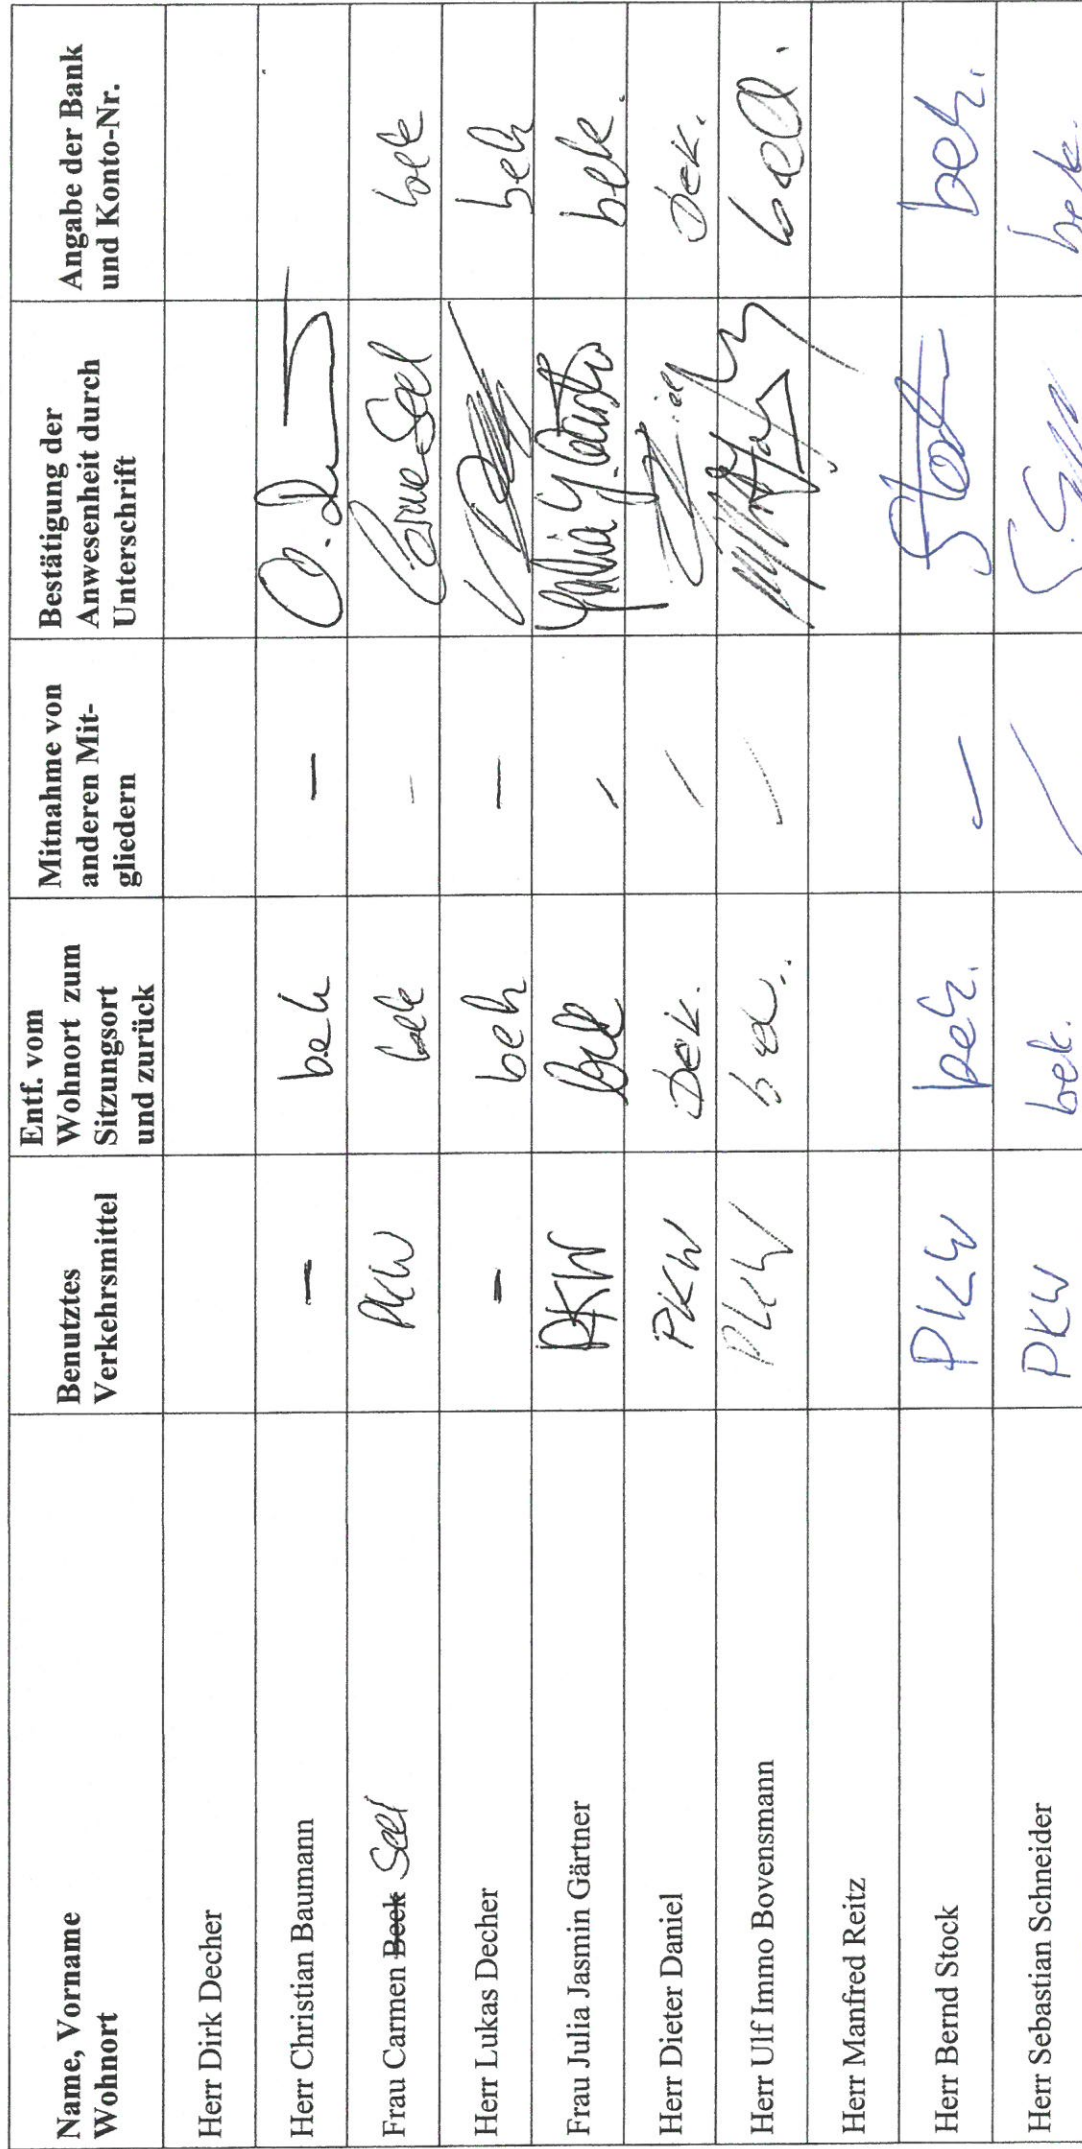 Name, Vorname
Wohnort
Benutztes
Verkehrsmittel
Entf. vom
Wohnort zum
Sitzungsort
und zurück
Mitnahme von
anderen Mit-
gliedern
Bestätigung der
Anwesenheit durch
Unterschrift
Angabe der Bank
und Konto-Nr.
Herr Dirk Decher
Herr Christian Baumann – beh –
Frau Carmen Beek Seel PKW bek – Carmen Seel bek
Herr Lukas Decher – beh – beh
Frau Julia Jasmin Gärtner PKW bek – bek.
Herr Dieter Daniel PKW bek. – bek.
Herr Ulf Immo Bovensmann PKW –
Herr Manfred Reitz
Herr Bernd Stock PKW beh. – Stock beh.
Herr Sebastian Schneider PKW bek. – bek.